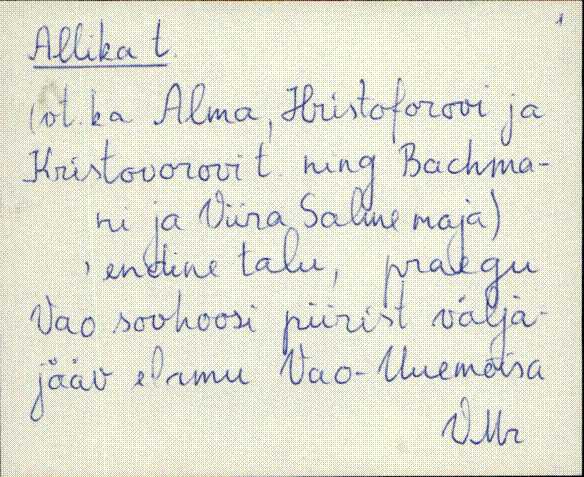 1
Allika t.
(vt. ka Alma, Hristoforovi ja
Kristovorovi t. ning Bachma-
ni ja Viira Salme maja)
, endine talu, praegu
Vao sovhoosi piirist välja-
jääv elamu Vao-Uuemõisa
VMr